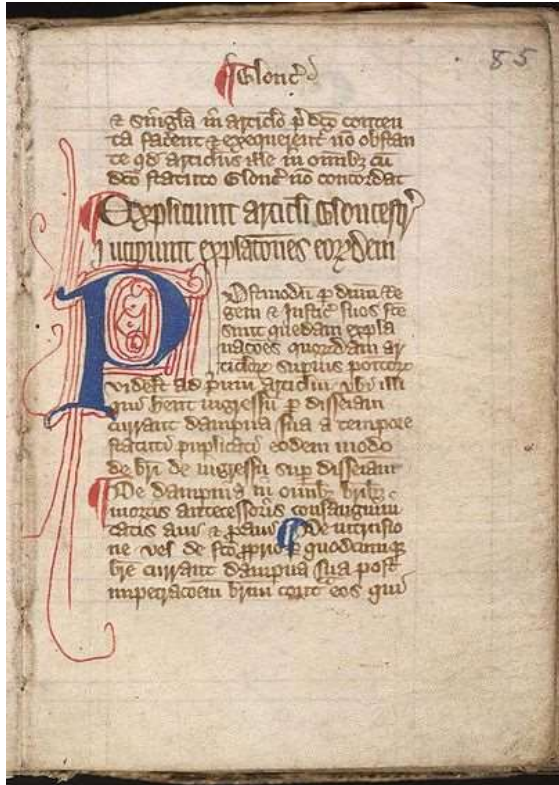 85
Glouc̄
& singl̄a in articlo p̄dc̄o conten
ta facent & exequerent̄ nō obstan
te qd̄ articlus ille in omībȝ cū
dc̄o statuto Glouc̄ nō concordat
Expliciunt articl̄i Gloucestr̄
Incipiunt explac̄ones eorȝdem
Postmodū p̄ dn̄m Re
gem & Justic̄ suos fc̄e
sunt quedam expla
nac̄ões quorȝdam ar
ticlorȝ supius positorȝ
videlt̄ ad p̄mū articlū vbi illi
qui hent̄ ingressū p̄ disseiam
currant dampna sua a tempore
statuti puplicati eodem modo
de br̄i de ingressu sup̄ disseiam
De dampnis in omībȝ br̄ibȝ
mortis antecessoris consanguini
tatis aui & p̄aui De intrusio
ne vel de fc̄o p̄prio p̄ quodcumqȝ
bre currant dampna sua post
impetrac̄oem br̄ium cont̄ eos qui